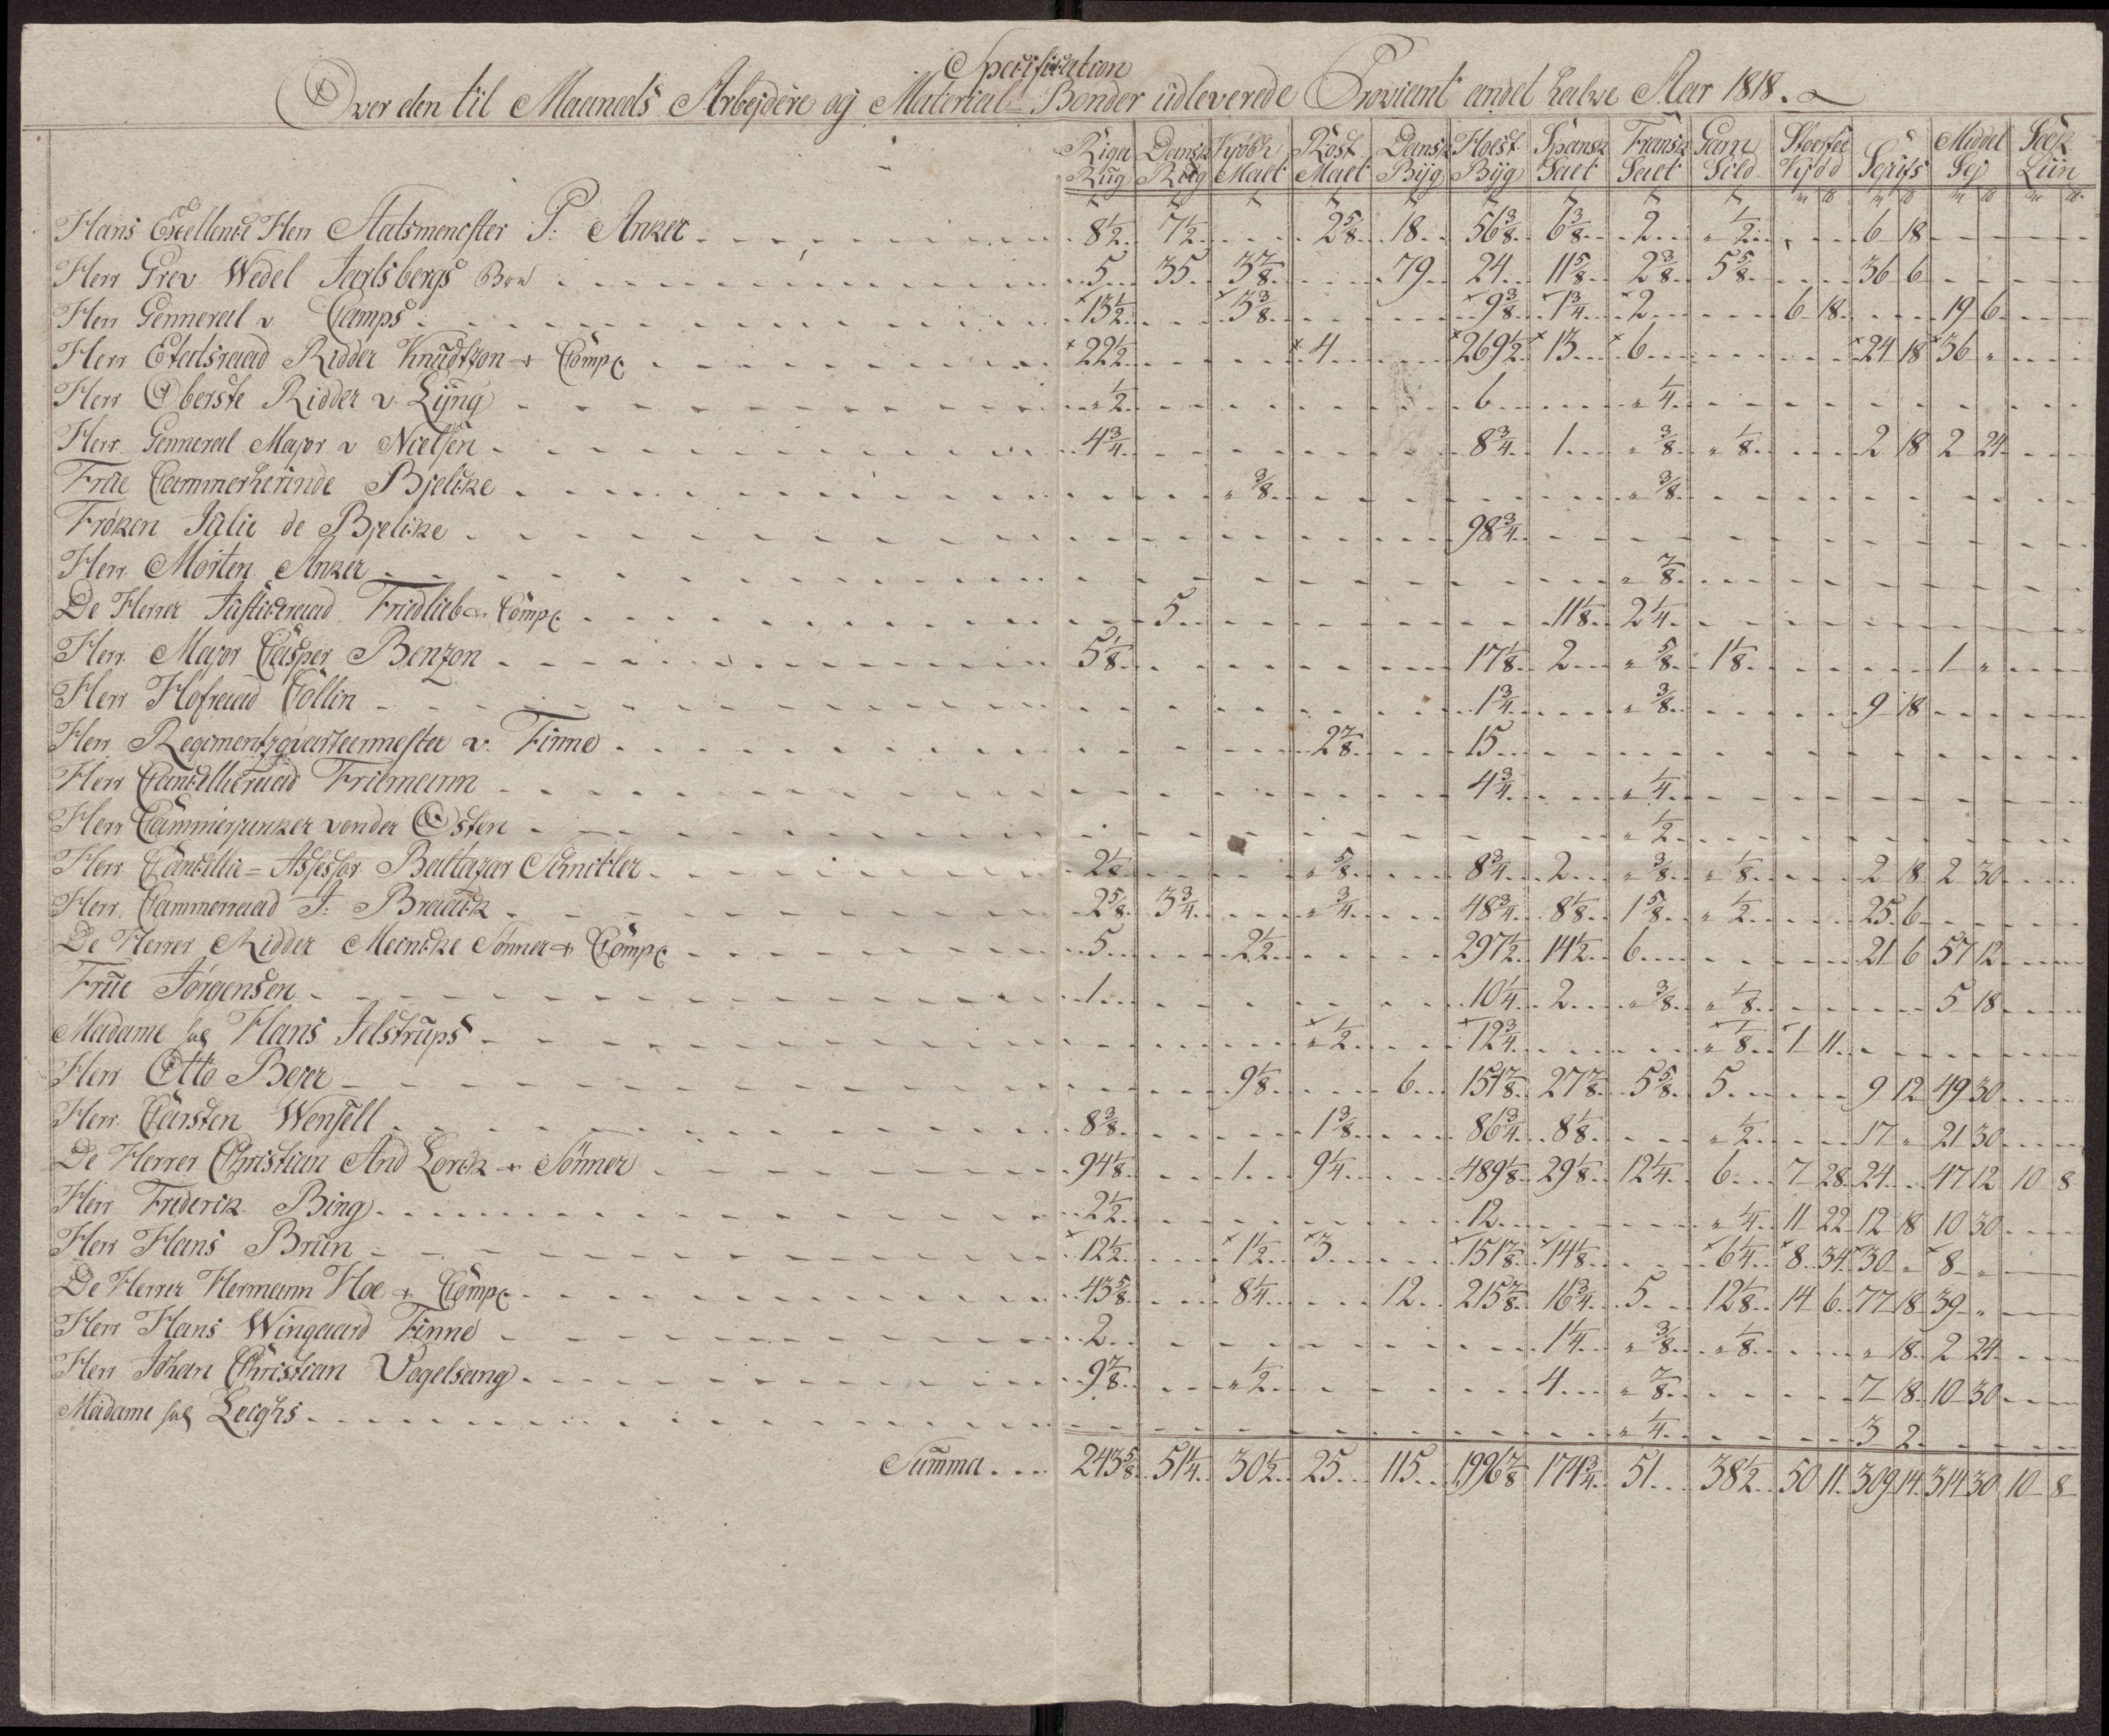 Specification
Over den til Maaneds Arbejdere og Material-Bønder udleverede Proviant andet halve Aar 1818.
Riga Rug Dansk Rug Kjøbh Malt Rost Malt Dansk Byg Holst Byg Spansk Salt Fransk Salt Garn Sild Kiødd Grÿs Middel Sej Liin
Hans Excellence Herr Statsmenester P: Anker 8½ 7½ 2⅝ 18 56⅜ 6⅜ 2 „½ 6 18
Herr Grev Wedel Jarlsbergs 5 35 3⅞ 79 24 11⅝ 2⅜ 5⅝ 36 6
Herr Genneral v Camps 13½ 3⅜ 9¾ 1¾ 2 6 18 19 6
Herr Etatsraad Ridder Knudtzon & Comp 22½ 4 269½ 13 6 24 18 36 „
Herr Oberste Ridder v. Lÿng „½ 6 „¼
Herr Genneral Major v Nielsen 4¾ 8¾ 1 „⅜ „⅛ 2 18 2 24
Frue Cammerherinde Bjelcke „⅜ „⅜
Frøken Julie de Bjelcke 98¾
Herr Morten Anker „⅞
De Herrer Justiceraad Friedlieb & Comp 5 11⅛ 2¼
Herr Major Casper Benzon 5⅛ 17⅛ 2 „⅝ 1⅛ 1 „
Herr Hofraad Collin 1¾ „⅜ 9 18
Herr Regimentzqvarteermester v. Finne 2⅞ 15
Herr Cancellieraad Friemann 4¾ „¼
Herr Cammerjunker vonder Osten „½
Herr Cancellie=Assessor Baltazar Schnitler 2⅛ „⅝ 8¾ 2 „⅜ „⅛ 2 18 2 30
Herr Cammerraad J: Braack 2⅝ 3¾ „¾ 48¾ 8⅛ 1⅝ „½ 25 6
De Herrer Ridder Meincke Sønner & Comp 5 2½ 297½ 14½ 6 21 6 57 12
Frue Jørgensen 1 10¼ 2 „⅜ „⅛ 5 18
Madame sal Hans Jelstrups „½ 12¾ „⅛ 1 11
Herr Otto Beer 9⅛ 6 151⅞ 27⅞ 5⅝ 5 9 12 49 30
Herr Carsten Wensell 8⅜ 1⅜ 86¾ 8⅛ „½ 17 „ 21 30
De Herrer Christian And Lorck & Sønner 94⅛ 1 9¼ 489⅛ 29⅛ 12¼ 6 7 28 24 47 12 10 8
Herr Frederik Bing 2½ 12 „¼ 11 22 12 18 10 30
Herr Hans Brun 12½ 1½ 3 151⅞ 14⅛ 6¼ 8 34 30 „ 8 „
De Herrer Hermann Hoe & Comp 43⅝ 8¼ 12 215⅞ 16¾ 5 12⅛ 14 6 77 18 39 „
Herr Hans Wingaard Finne 2 1¼ „⅜ „⅛ „ 18 2 24
Herr Johan Christian Vogelsang 9⅞ „½ 4 „⅞ 7 18 10 30
Madame sal Leighs „¼ 3 2
Summa 243⅝ 51¼ 30½ 25 115 1996⅞ 174¾ 51 38½ 50 11 309 14 314 30 10 8